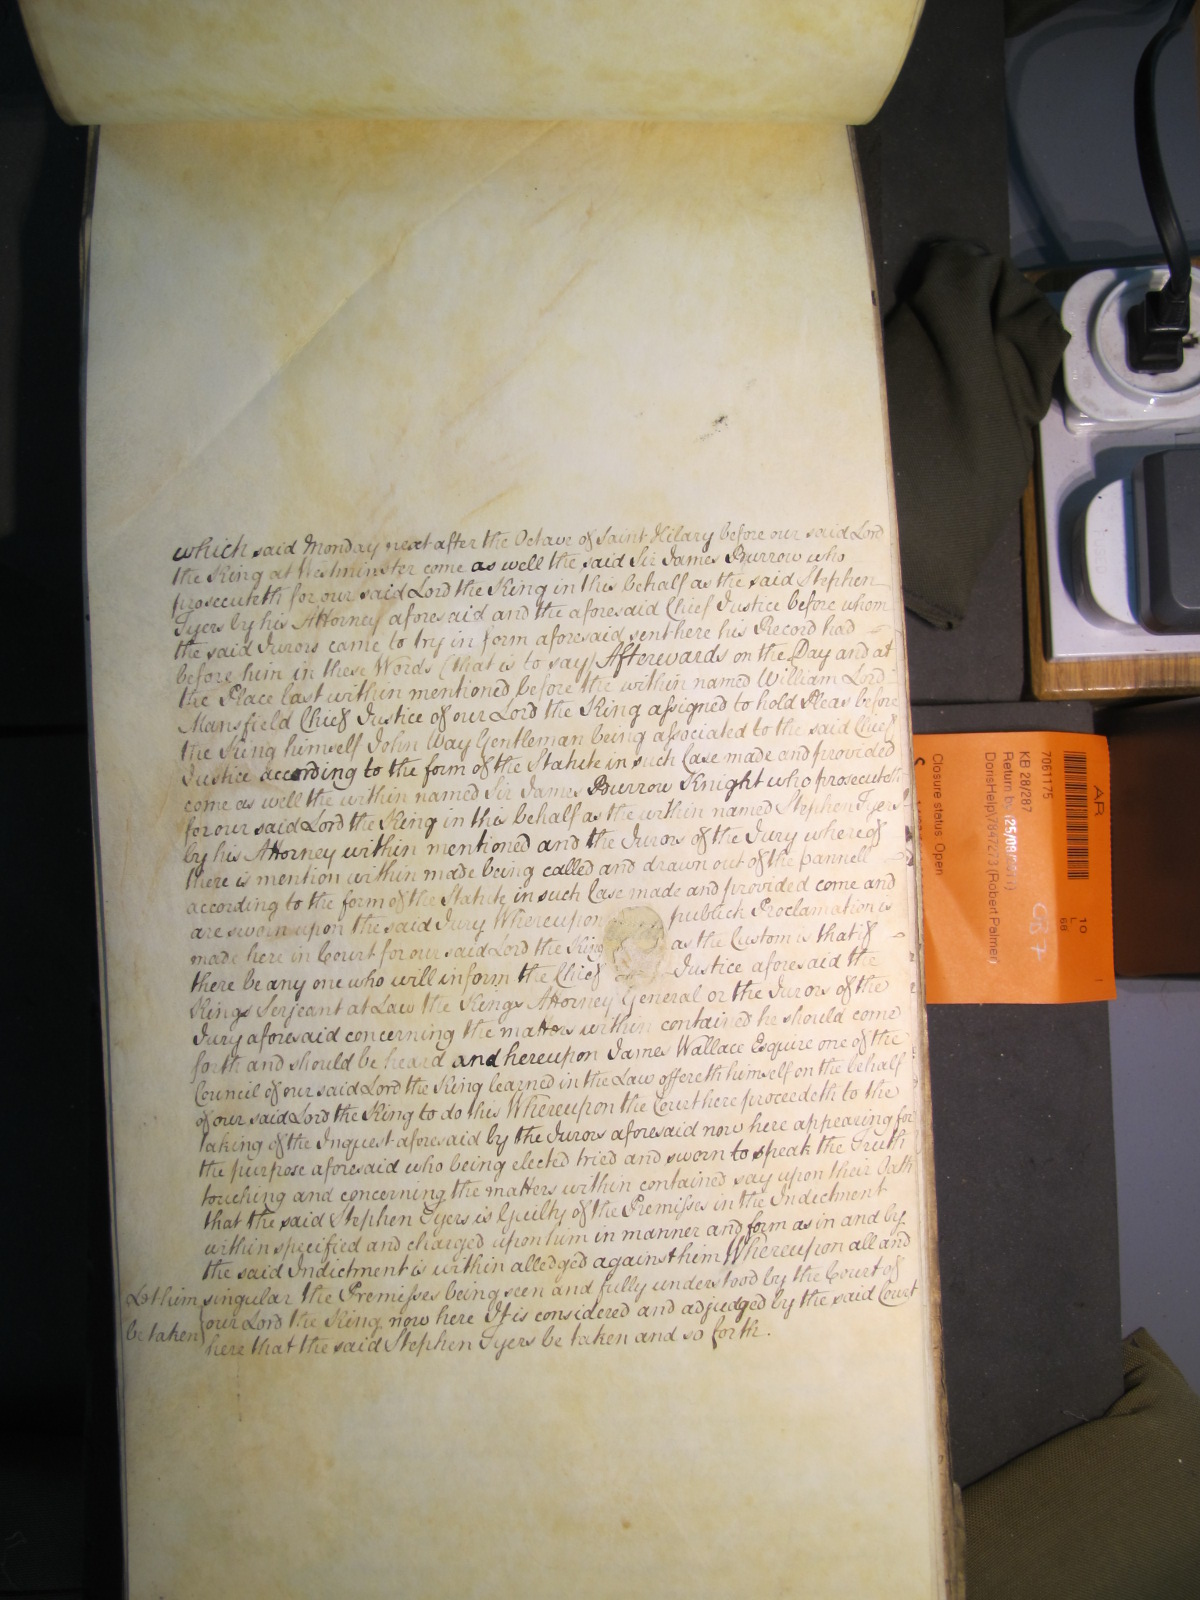 which said Monday next after the Octave of Saint Hilary before our said Lord
the King at Westminster come as well the said Sir James Burrow who
prosecuteth for our said Lord the King in this behalf as the said Stephen
Tyers by his Attorney aforesaid and the aforesaid Chief Justice before whom
the said Jurors came to try in form aforesaid sent here his Record had
before him in these Words (that is to say) Afterwards on the Day and at
the Place last within mentioned before the within named William Lord
Mansfield Chief Justice of our Lord the King assigned to hold Pleas before
the King himself John Way Gentleman being associated to the said Chief
Justice according to the form of the Statute in such Case made and provided
come as well the within named Sir James Burrow Knight who prosecuteth
for our said Lord the King in this behalf as the within named Stephen Tyers
by his Attorney within mentioned and the Jurors of the Jury whereof
there is mention within made being called and drawn out of the pannell
according to the form of the Statute in such Case made and provided come and
are sworn upon the said Jury Whereupon publick Proclamation is
made here in Court for our said Lord the King as the Custom is that if
there be any one who will inform the Chief Justice aforesaid the
Kings Serjeant at Law the Kings Attorney General or the Jurors of the
Jury aforesaid concerning the matters within contained he should come
forth and should be heard and hereupon James Wallace Esquire one of the
Council of our said Lord the King learned in the Law offereth himself on the behalf
of our said Lord the King to do this Whereupon the Court here proceedeth to the
taking of the Inquest aforesaid by the Jurors aforesaid now here appearing for
the purpose aforesaid who being elected tried and sworn to speak the Truth
touching and concerning the matters within contained say upon their Oath
that the said Stephen Tyers is Guilty of the Premisses in the Indictment
within specified and charged upon him in manner and form as in and by
the said Indictment is within alledged against him Whereupon all and
Let him singular the Premisses being seen and fully understood by the Court of
be taken our Lord the King now here It is considered and adjudged by the said Court
here that the said Stephen Tyers be taken and so forth.
AR
7061175
KB 28/287
Return by (25/08/
DorisHelp\7847273 (Robert Palmer)
Closure status Open
10
L